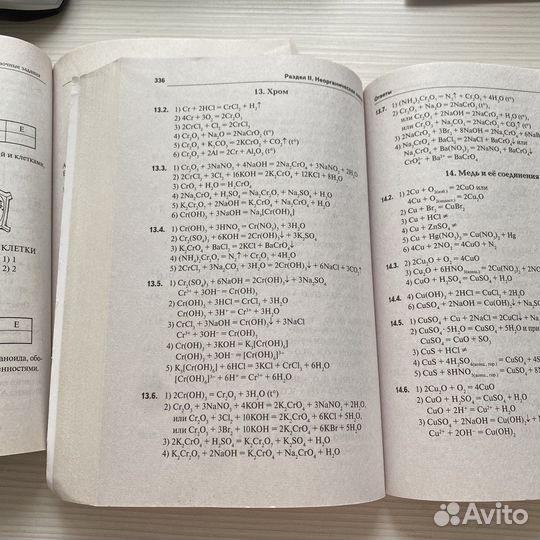 очные задания
Е
й и клетками,
КЛЕТКИ
1) 1
2) 2
Е
аноида, обо-
енностями.
336
Раздел II. Неорганическая
13. Хром
13.2. 1) Cr + 2HCl = CrCl₂ + H₂↑
2) 4Cr + 3O₂ = 2Cr₂O₃
3) 2CrCl₂ + Cl₂ = 2CrCl₃
4) Cr₂O₃ + Na₂O = 2NaCrO₂ (t°)
5) Cr₂O₃ + K₂CO₃ = 2KCrO₂ + CO₂↑ (t°)
6) Cr₂O₃ + 2Al = 2Cr + Al₂O₃ (t°)
13.3. 1) Cr₂O₃ + 3NaNO₃ + 4NaOH = 2Na₂CrO₄ + 3NaNO₂ + 2H₂O
2) 2CrCl₃ + 3Cl₂ + 16KOH = 2K₂CrO₄ + 12KCl + 8H₂O
3) CrO₃ + H₂O = H₂CrO₄
4) 2Na₂CrO₄ + H₂SO₄ = Na₂Cr₂O₇ + Na₂SO₄ + H₂O
5) K₂Cr₂O₇ + 2NaOH = K₂CrO₄ + Na₂CrO₄ + H₂O
6) Cr(OH)₃ + 3NaOH = Na₃[Cr(OH)₆]
13.4. 1) Cr(OH)₃ + 3HNO₃ = Cr(NO₃)₃ + 3H₂O
2) Cr₂(SO₄)₃ + 6KOH = 2Cr(OH)₃↓ + 3K₂SO₄
3) K₂CrO₄ + BaCl₂ = 2KCl + BaCrO₄↓
4) (NH₄)₂Cr₂O₇ = N₂↑ + Cr₂O₃ + 4H₂O
5) 2CrCl₃ + 3Na₂CO₃ + 3H₂O = 2Cr(OH)₃↓ + 6NaCl + 3CO₂↑
13.5. 1) Cr₂(SO₄)₃ + 6NaOH = 2Cr(OH)₃↓ + 3Na₂SO₄
Cr³⁺ + 3OH⁻ = Cr(OH)₃
2) Cr(OH)₃ + 3HCl = CrCl₃ + 3H₂O
Cr(OH)₃ + 3H⁺ = Cr³⁺ + 3H₂O
3) CrCl₃ + 3NaOH = Cr(OH)₃↓ + 3NaCl
Cr³⁺ + 3OH⁻ = Cr(OH)₃
4) Cr(OH)₃ + 3KOH = K₃[Cr(OH)₆]
Cr(OH)₃ + 3OH⁻ = [Cr(OH)₆]³⁻
5) K₃[Cr(OH)₆] + 6HCl = 3KCl + CrCl₃ + 6H₂O
[Cr(OH)₆]³⁻ + 6H⁺ = Cr³⁺ + 6H₂O
13.6. 1) 2Cr(OH)₃ = Cr₂O₃ + 3H₂O (t°)
2) Cr₂O₃ + 3NaNO₃ + 4KOH = 2K₂CrO₄ + 3NaNO₂ + 2H₂O,
или Cr₂O₃ + 3Cl₂ + 10KOH = 2K₂CrO₄ + 6KCl + 5H₂O,
или Cr₂O₃ + 3Br₂ + 10KOH = 2K₂CrO₄ + 6KBr + 5H₂O
3) 2K₂CrO₄ + H₂SO₄ = K₂Cr₂O₇ + K₂SO₄ + H₂O
4) K₂Cr₂O₇ + 2NaOH = K₂CrO₄ + Na₂CrO₄ + H₂O
Ответы
13.7. 1) (NH₄)₂Cr₂O₇ = N₂↑ + Cr₂O₃ + 4H₂O (t°)
2) Cr₂O₃ + Na₂O = 2NaCrO₂ (t°),
или Cr₂O₃ + Na₂CO₃ = 2NaCrO₂ + CO₂↑ (t°)
3) 2NaCrO₂ + 3Br₂ + 8NaOH = 2Na₂CrO₄ +
4) Na₂CrO₄ + BaCl₂ = 2NaCl + BaCrO₄↓
Na₂CrO₄ + Ba(NO₃)₂ = 2NaNO₃ + BaCrO₄↓
CrO₄²⁻ + Ba²⁺ = BaCrO₄
14. Медь и её соединения
14.2. 1) 2Cu + O₂(изб.) = 2CuO или
4Cu + O₂(недост.) = 2Cu₂O
2) Cu + Br₂ = CuBr₂
3) Cu + HCl ≠
4) Cu + ZnSO₄ ≠
5) Cu + Hg(NO₃)₂ = Cu(NO₃)₂ + Hg
6) 4Cu + 2NO₂ = 4CuO + N₂
14.3. 2) 2Cu₂O + O₂ = 4CuO
3) Cu₂O + 6HNO₃(конц.) = 2Cu(NO₃)₂ + 2NO
4) CuO + H₂SO₄ = CuSO₄ + H₂O
14.4. 4) Cu(OH)₂ + 2HCl = CuCl₂ + 2H₂O
6) CuSO₄ + 2NaOH = Cu(OH)₂↓ + Na₂SO
14.5. 1) CuSO₄ + Cu + 2NaCl = 2CuCl↓ + Na
2) CuSO₄·5H₂O = CuSO₄ + 5H₂O и при
CuSO₄ = CuO + SO₃
3) CuS + HCl ≠
4) CuS + 4H₂SO₄(конц., гор.) = CuSO₄ + 4S
5) CuS + 8HNO₃(конц., гор.) = CuSO₄ + 8N
14.6. 1) 2Cu₂O + O₂ = 4CuO
2) CuO + H₂SO₄ = CuSO₄ + H₂O
CuO + 2H⁺ = Cu²⁺ + H₂O
3) CuSO₄ + 2NaOH = Cu(OH)₂↓ + Na₂S
Cu²⁺ + 2OH⁻ = Cu(OH)₂
Avito